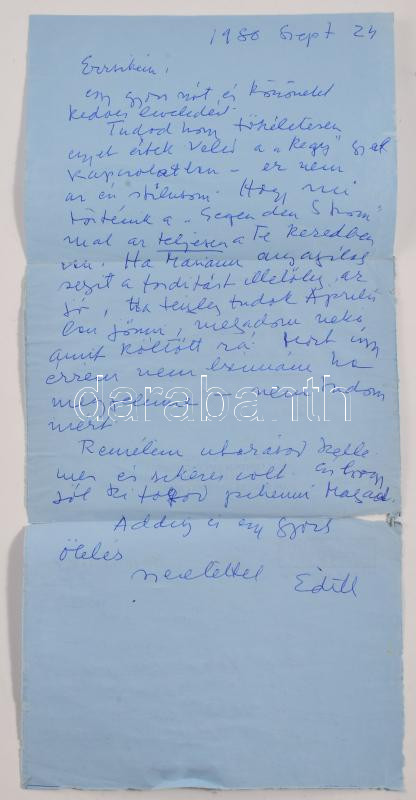 1980 Szept 24
Erzsikém!
egy gyors szót, és köszönetet
kedves leveledért.
Tudod hogy tökéletesen
egyet értek Veled a „kegy” szak
kapcsolatban – ez nem
az én stílusom. Hogy mi
történik a „Gegen den Strom”
mal az teljesen a Te kezedben
van. Ha Mariann anyagilag
segít a fordítást illetőleg, az
jó, Ha tényleg tudok Április
ban jönni, megadom neki
amit költött rá. Mert így
érzem nem bánnám ha
megjelenne – nem tudom
miért.
Remélem utazásod kelle
mes és sikeres volt. És hogy
jól ki fogod pihenni Magad.
Addig is egy gyors
ölelés
szeretettel Edith
darabanth